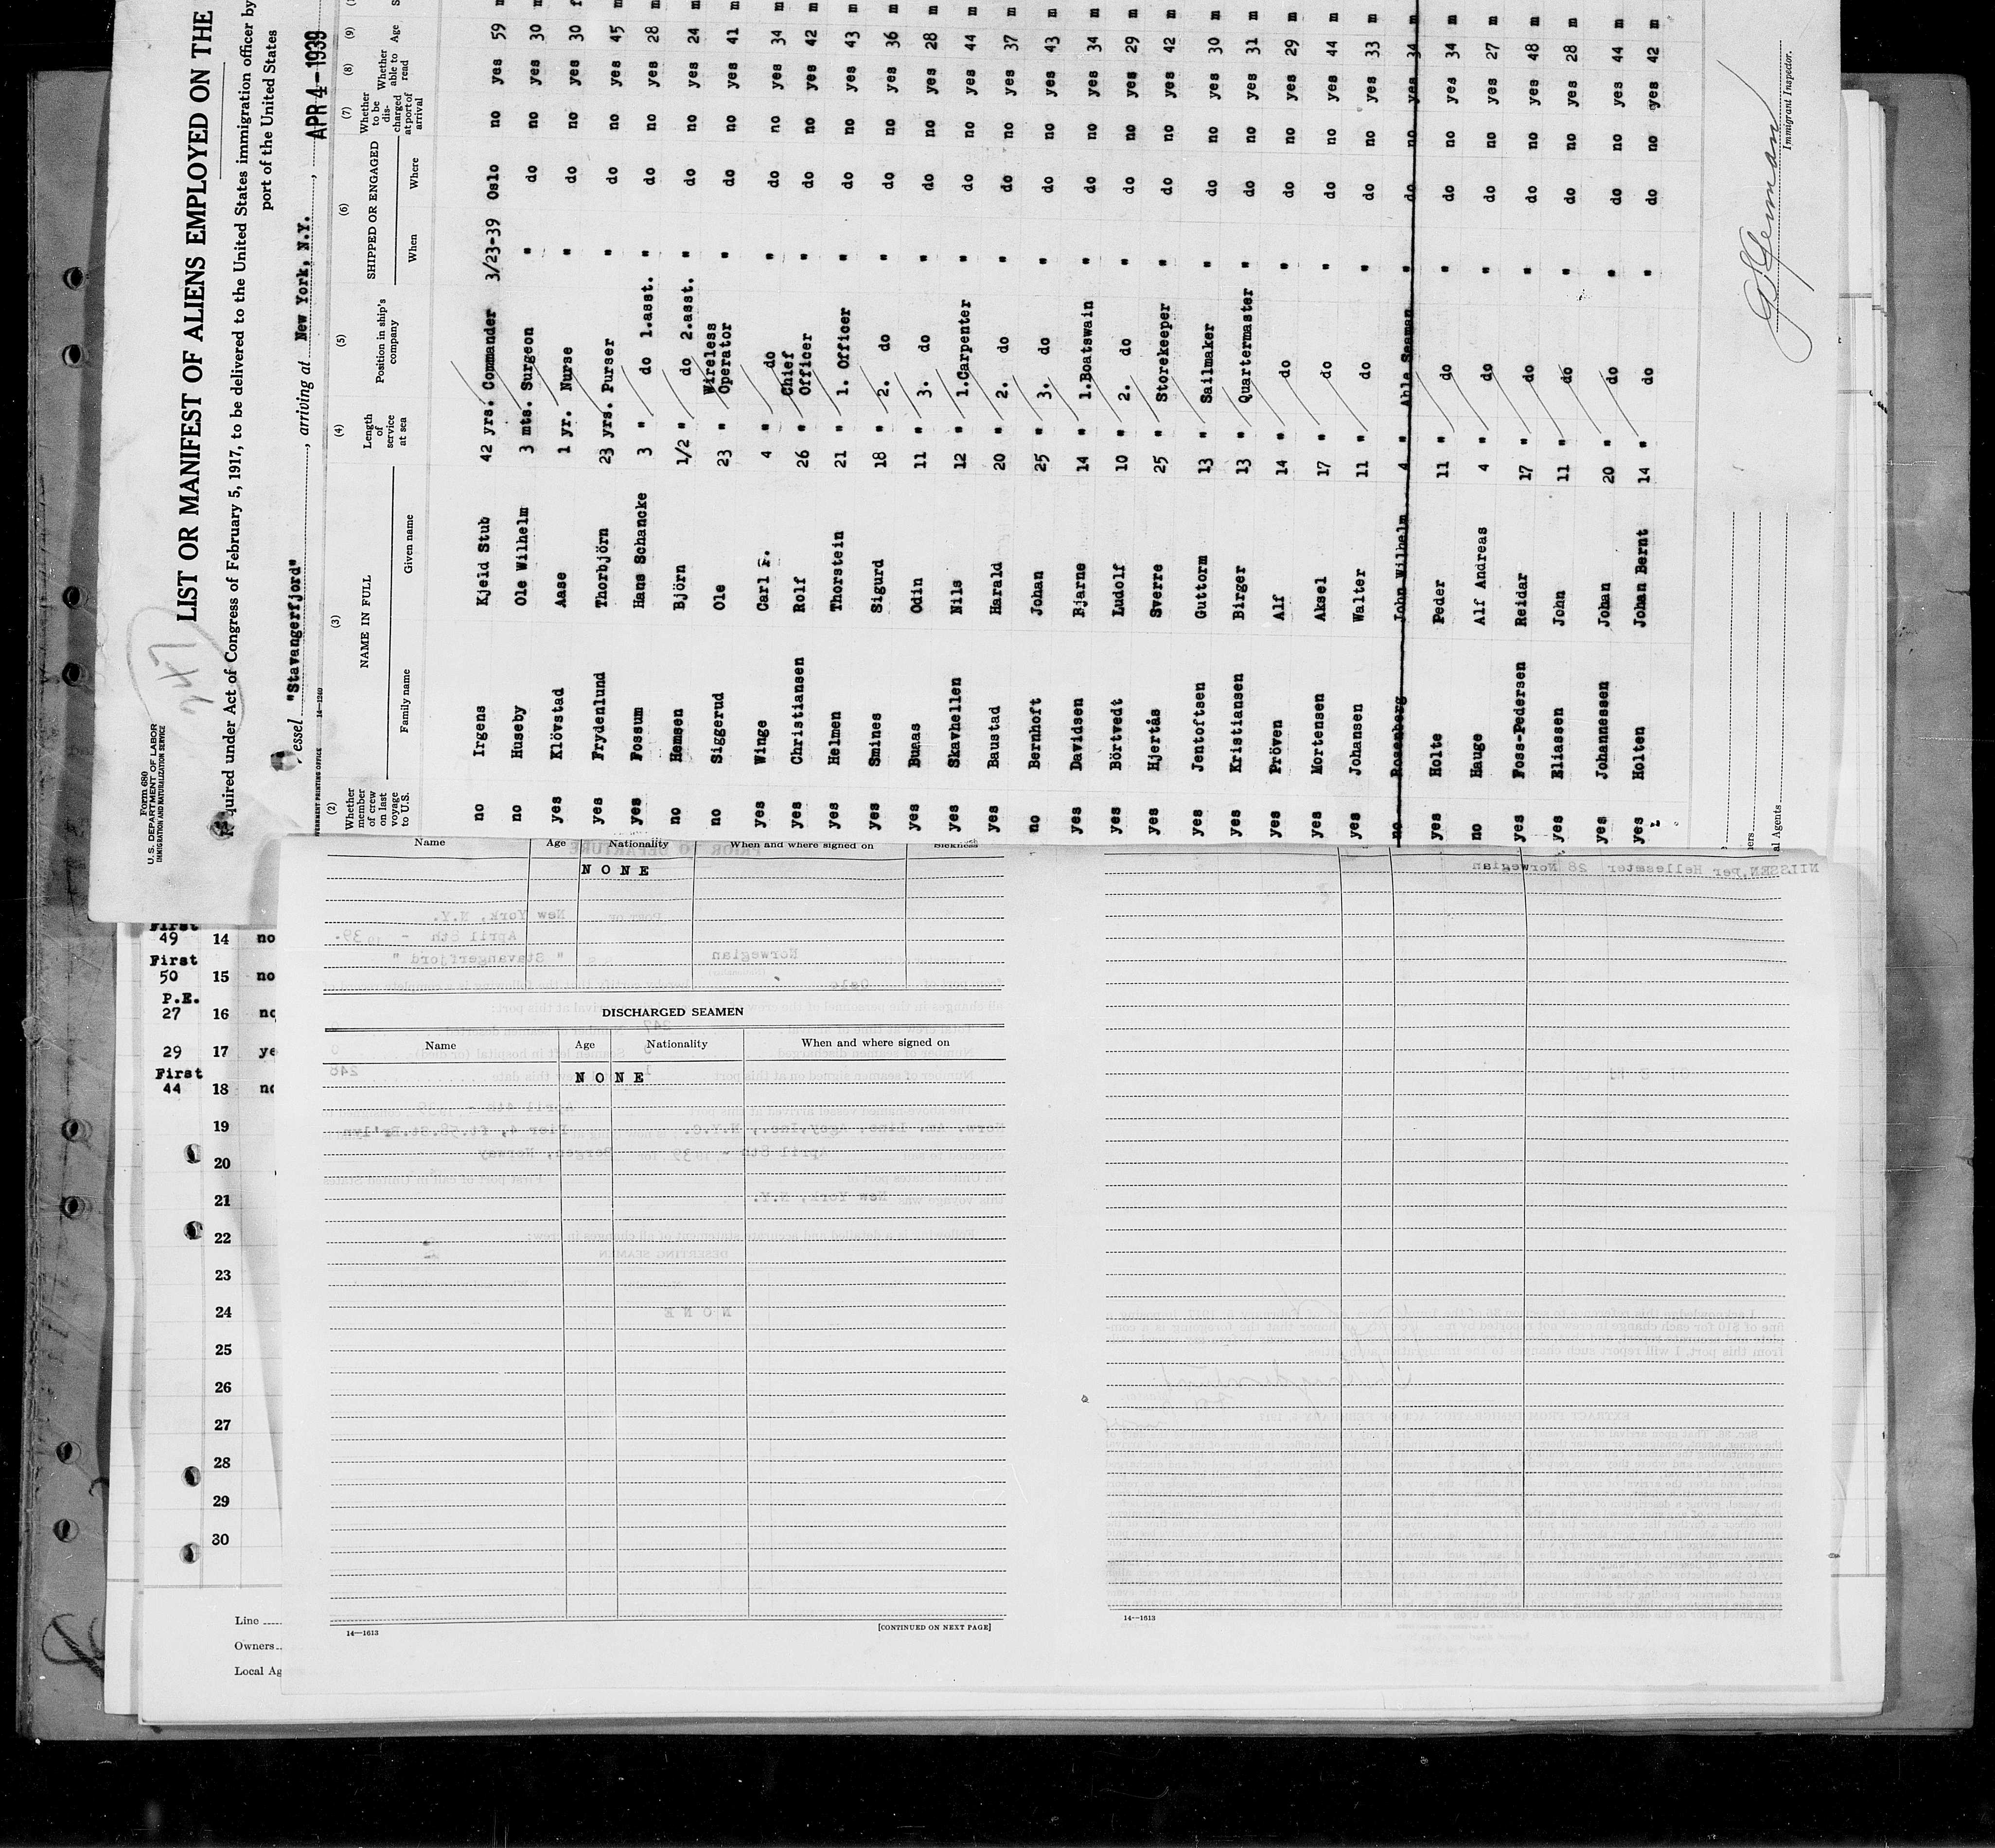 Form 680
U. S. DEPARTMENT OF LABOR
IMMIGRATION AND NATURALIZATION SERVICE
247
LIST OR MANIFEST OF ALIENS EMPLOYED ON THE
quired under Act of Congress of February 5, 1917, to be delivered to the United States immigration officer by
port of the United States
essel "Stavangerfjord", arriving at New York, N.Y., APR 4-1939
VERNMENT PRINTING OFFICE 14—1240
(2) (3) (4) (5) (6) (7) (8) (9)
Whether member of crew on last voyage to U.S. NAME IN FULL Family name Given name Length of service at sea Position in ship's company SHIPPED OR ENGAGED When Where Whether to be discharged at port of arrival Whether able to read Age
no Irgens Kjeld Stub 42 yrs. Commander 3/23-39 Oslo no yes 59 m
no Huseby Ole Wilhelm 3 mts. Surgeon " do no yes 30 m
yes Klövstad Aase 1 yr. Nurse " do no yes 30 f
yes Frydenlund Thorbjörn 23 yrs. Purser " do no yes 45 m
yes Fossum Hans Schancke 3 " do 1.asst. " do no yes 28 m
no Hemsen Björn 1/2 " do 2.asst. " do no yes 24 m
no Siggerud Ole 23 " Wireless Operator " do no yes 41 m
yes Winge Carl F. 4 " do " do no yes 34 m
yes Christiansen Rolf 26 " Chief Officer " do no yes 42 m
yes Helmen Thorstein 21 " 1. Officer " do no yes 43 m
yes Smines Sigurd 18 " 2. do " do no yes 36 m
yes Buaas Odin 11 " 3. do " do no yes 28 m
yes Skavhellen Nils 12 " 1.Carpenter " do no yes 44 m
yes Baustad Harald 20 " 2. do " do no yes 37 m
no Bernhoft Johan 25 " 3. do " do no yes 43 m
yes Davidsen Bjarne 14 " 1.Boatswain " do no yes 34 m
yes Börtvedt Ludolf 10 " 2. do " do no yes 29 m
yes Hjertås Sverre 25 " Storekeeper " do no yes 42 m
yes Jentoftsen Guttorm 13 " Sailmaker " do no yes 30 m
yes Kristiansen Birger 13 " Quartermaster " do no yes 31 m
yes Pröven Alf 14 " do " do no yes 29 m
yes Mortensen Aksel 17 " do " do no yes 44 m
yes Johansen Walter 11 " do " do no yes 33 m
no Rosenberg John Wilhelm 4 " Able Seaman " do no yes 34 m
yes Holte Peder 11 " do " do no yes 34 m
no Hauge Alf Andreas 4 " do " do no yes 27 m
yes Foss-Pedersen Reidar 17 " do " do no yes 48 m
yes Eliassen John 11 " do " do no yes 28 m
yes Johannessen Johan 20 " do " do no yes 44 m
yes Holten Johan Bernt 14 " do " do no yes 42 m
Immigrant Inspector.
ers
al Agents
Name Age Nationality When and where signed on Sickness
NONE
DISCHARGED SEAMEN
Name Age Nationality When and where signed on
NONE
14—1613
[CONTINUED ON NEXT PAGE]
NILSSEN, Per Hellesæter 28 Norwegian
14—1613
First
49 14 no
First
50 15 no
P.E.
27 16 no
29 17 ye
First
44 18 no
19
20
21
22
23
24
25
26
27
28
29
30
Line
Owners
Local Ag